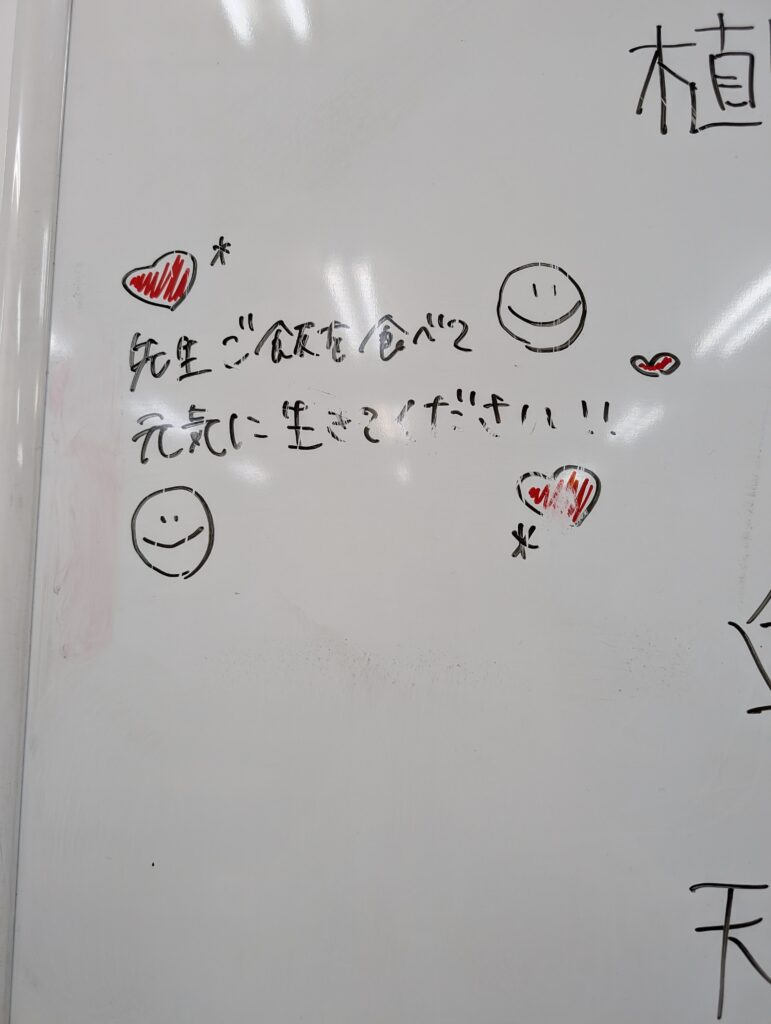 植
先生ご飯を食べて
元気に生きてください!!
天